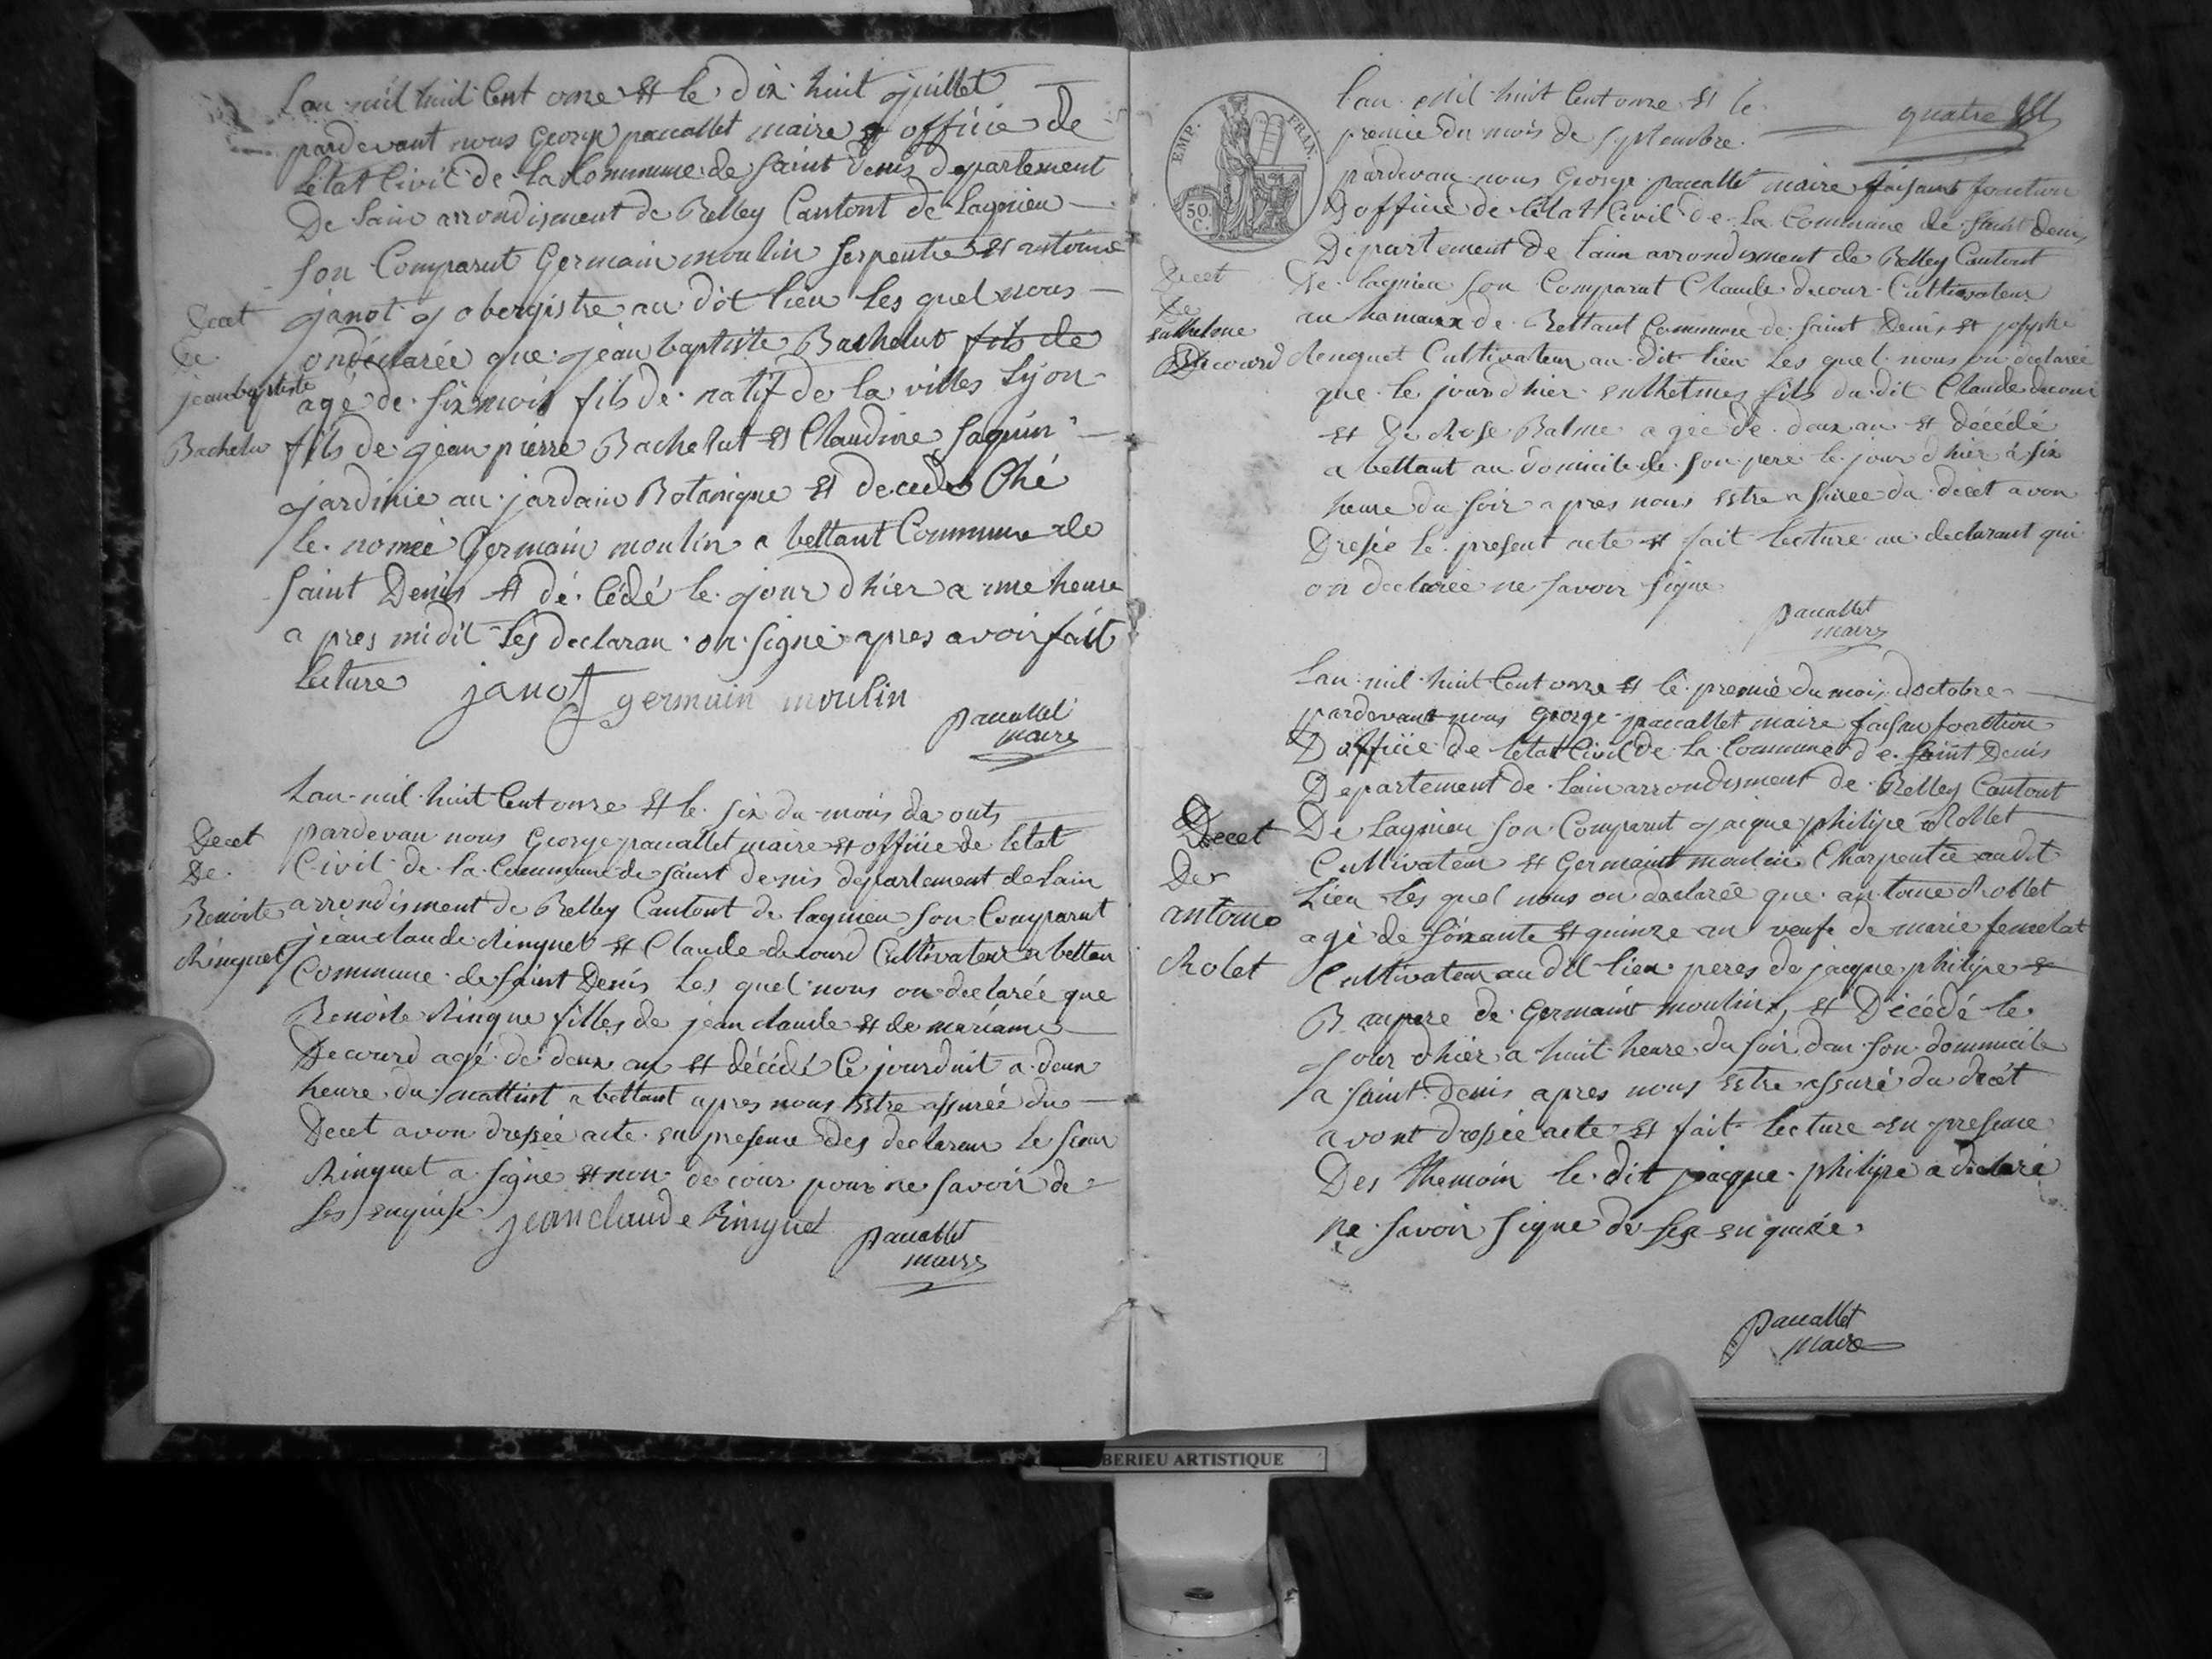 Lan mil huit Cent onze Et le dix huit juillet
pardevant nous George pauallet maire Et officie de
Létat Civil de La Commune de Saint Denis departement
De Lain arrondisment de Belley Cantont de Lagnieu
son Comparut Germain moulin serpentie Et antoine
janot obergiste au dit lieu Les quel nous
on déclarée que jean baptiste Bachelut fils de
agé de six mois fils de natif de la villes Lyon
fils de jean pierre Bachelut Et Claudine
jardinie au jardain Botanique Et decede Ché
le nomée Germain moulin a bettant Commune de
Saint Denis Et dé Cédé le jour dhier a une heure
a pres midit Les declaran on signé apres avoir fait
Lecture janot germain moulin
pauallet
maire
Decet
De
jean baptiste
Bachelu
Lan mil huit Cent onze Et le six du mois da outs
pardevan nous George pauallet maire Et officie de létat
Civil de la Commune de Saint denis departement de Lain
arrondisment de Belley Cantont de lagnieu son Comparut
jean claude Ringuet Et Claude decourd Cultivateur a bettan
Commune de Saint Denis Les quel nous on declarée que
Benoite Ringue filles de jean claude Et de mariame
Decourd agé de deux an Et décédé Ce jourduit a deux
heure du mattint a bettant apres nous Estre assurée du
Decet avon dressée acte en presence Des declaran le sieur
Ringuet a signe Et non decour pour ne savoir de
Les enquise jean claude Ringuet
pauallet
maire
Decet
De
Benoite
Ringuet
EMP. FRAN.
50 C.
quatre
Lan mil huit Cent onze Et le
premie du mois de septembre
pardevan nous George pauallet maire faisant fonction
D officie de Létat Civil de La Commune de Saint Denis
Département De Lain arrondisment de Belley Cantont
De lagnieu son Comparut Claude decour Cultivateur
au hamaux de Bettant Commune de Saint Denis Et josephe
Renquet Cultivateur au dit lieu Les quel nous on déclarée
que le jour dhier enthelmes fils du dit Claude decour
Et De Rose Balme agée de deux an Et décédé
a bettant au domicile de son pere le jour dhier à six
heure du soir apres nous Estre assuree du decet avon
Dressée le present acte Et fait Lecture au declarant qui
on declarée ne savoir signe
pauallet
maire
Decet
De
enthelme
Decourd
Lan mil huit Cent onze Et le premie du mois doctobre
pardevant nous George pauallet maire faisan fonction
D officie de létat Civil de La Commune de Saint Denis
Département de Lain arrondisment de Belley Cantont
De Lagnieu son Comparut jaique philipe Rollet
Cultivateur Et Germaint moulin Charpentie audit
Lieu Les quel nous on declarée que antoine Rollet
agé de soixante Et quinze an veufe de marie
Cultivateur au dit lieu peres de jacque philipe Et
Baupere de Germaint moulin Et Décédé le
jour dhier a huit heure du soir dan son dommicile
a Saint Denis apres nous Estre assuré du decét
avont drossée acte Et fait Lecture En presence
Des themoin le dit jacque philipe a déclaré
ne savoir signe de Les en quixée
pauallet
maire
Decet
De
antoine
Rolet
BERIEU ARTISTIQUE